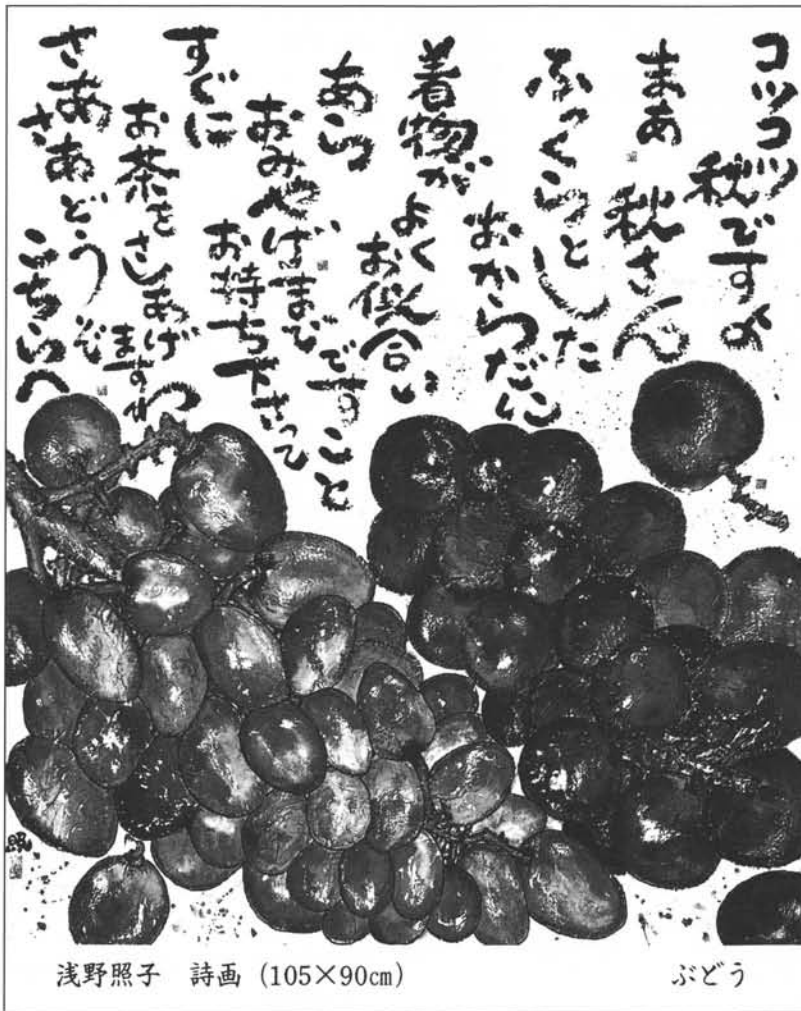 コツコツ
秋ですよ
まあ
秋さん
ふっくらとした
おからだに
着物が
よく
お似合い
あら
おみやげまで
ですこと
お持ち下さって
すぐに
お茶を
さしあげ
ますわ
さあ
さあどうぞ
こちらへ
浅野照子 詩画 (105×90㎝)
ぶどう